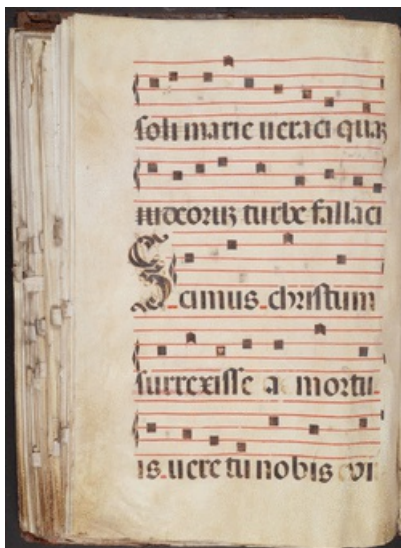 soli marie ueraci quaʒ
iudeoruʒ turbe fallaci
Scimus christum
surrexisse a mortu
is uere tu nobis vi